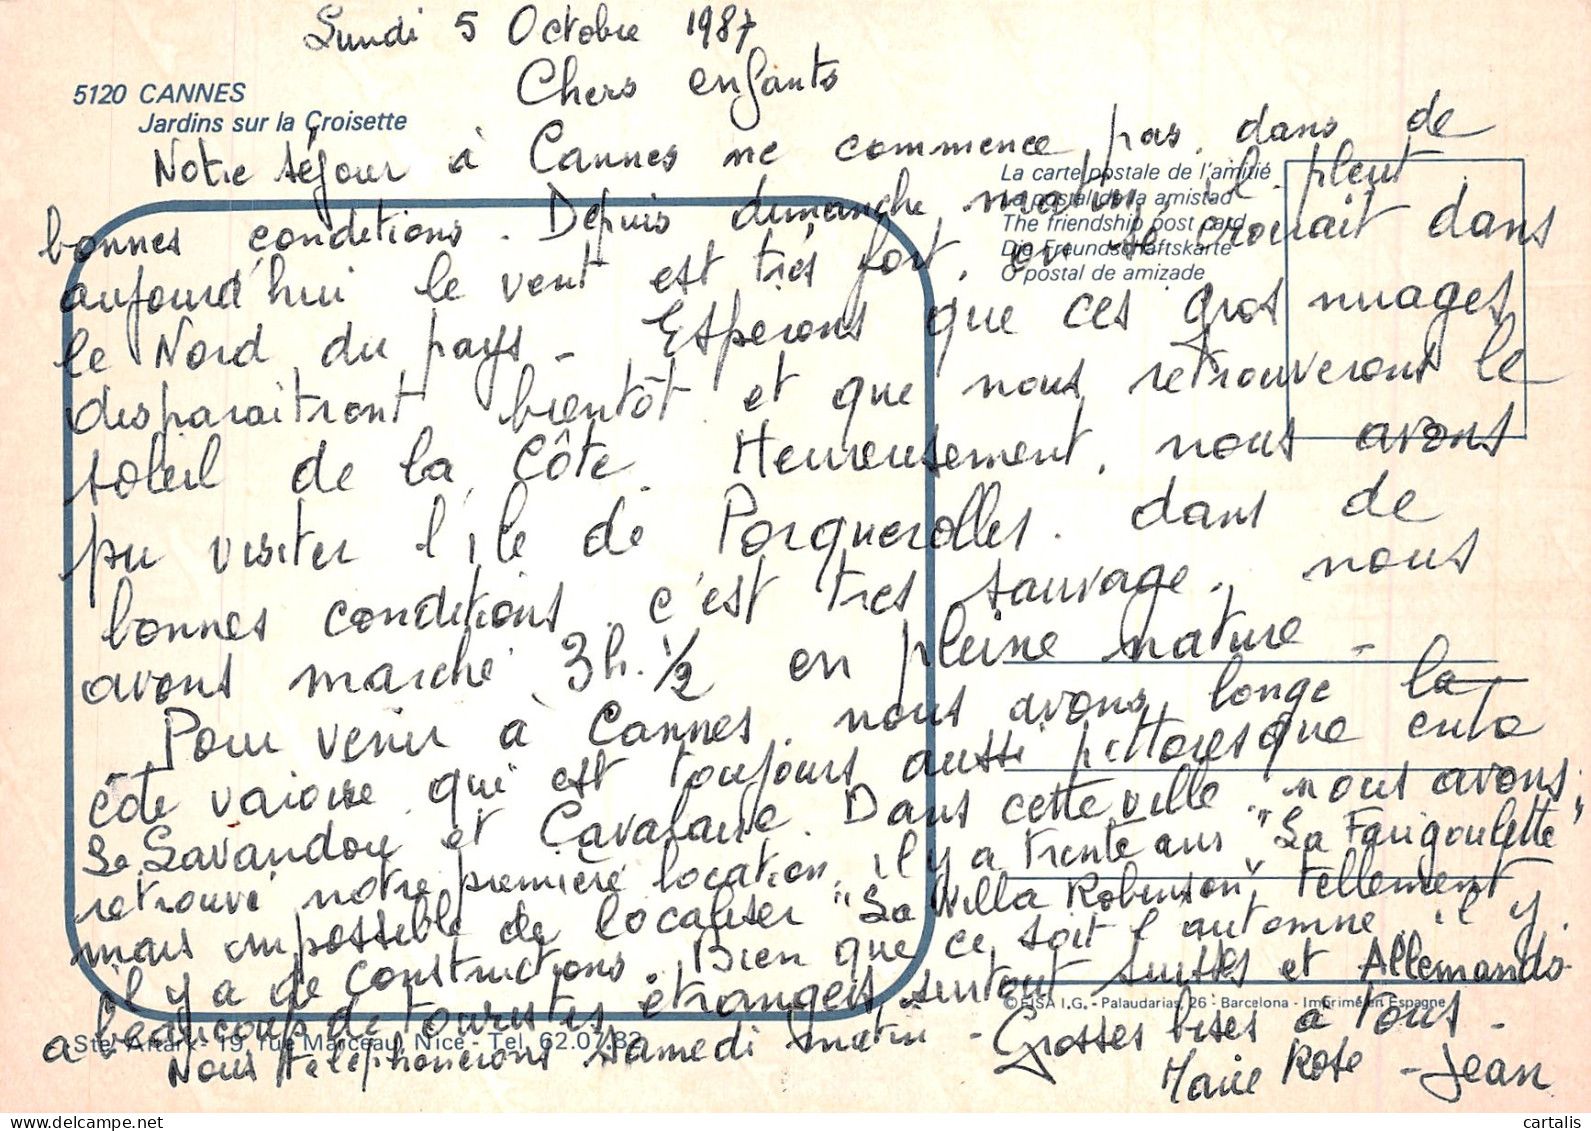 Lundi 5 Octobre 1987
Chers enfants
5120 CANNES
Jardins sur la Croisette
Notre séjour à Cannes ne commence pas dans de
bonnes conditions. Depuis dimanche matin, il pleut.
aujourd'hui le vent est très fort, on se croirait dans
le Nord du pays - Esperons que ces gros nuages
disparaitront bientôt et que nous retrouverons le
soleil de la Côte. Heureusement, nous avons
pu visiter l'ile de Porquerolles. dans de
bonnes conditions. c'est très sauvage, nous
avons marché 3h. 1/2 en pleine nature -
Pour venir à Cannes, nous avons longé la
côte varoise qui est toujours aussi pittoresque entre
Le Lavandou et Cavalaire. Dans cette ville nous avons
retrouvé notre première location, il y a trente ans "La Farigoulette"
mais impossible de localiser "La Villa Robinson", tellement
il y a de constructions. Bien que ce soit l'automne, il y
a beaucoup de touristes étrangers, surtout suisses et Allemands
Nous téléphonerons samedi matin - Grosses bises à tous -
Marie Rose - Jean
La carte postale de l'amitié
La postal de la amistad
The friendship post card
Die Freundschaftskarte
O postal de amizade
© FISA I.G. - Palaudarias, 26 - Barcelona - Imprimé en Espagne
Sté. Altari - 19, rue Marceau, Nice - Tel. 62.07.82
cartalis